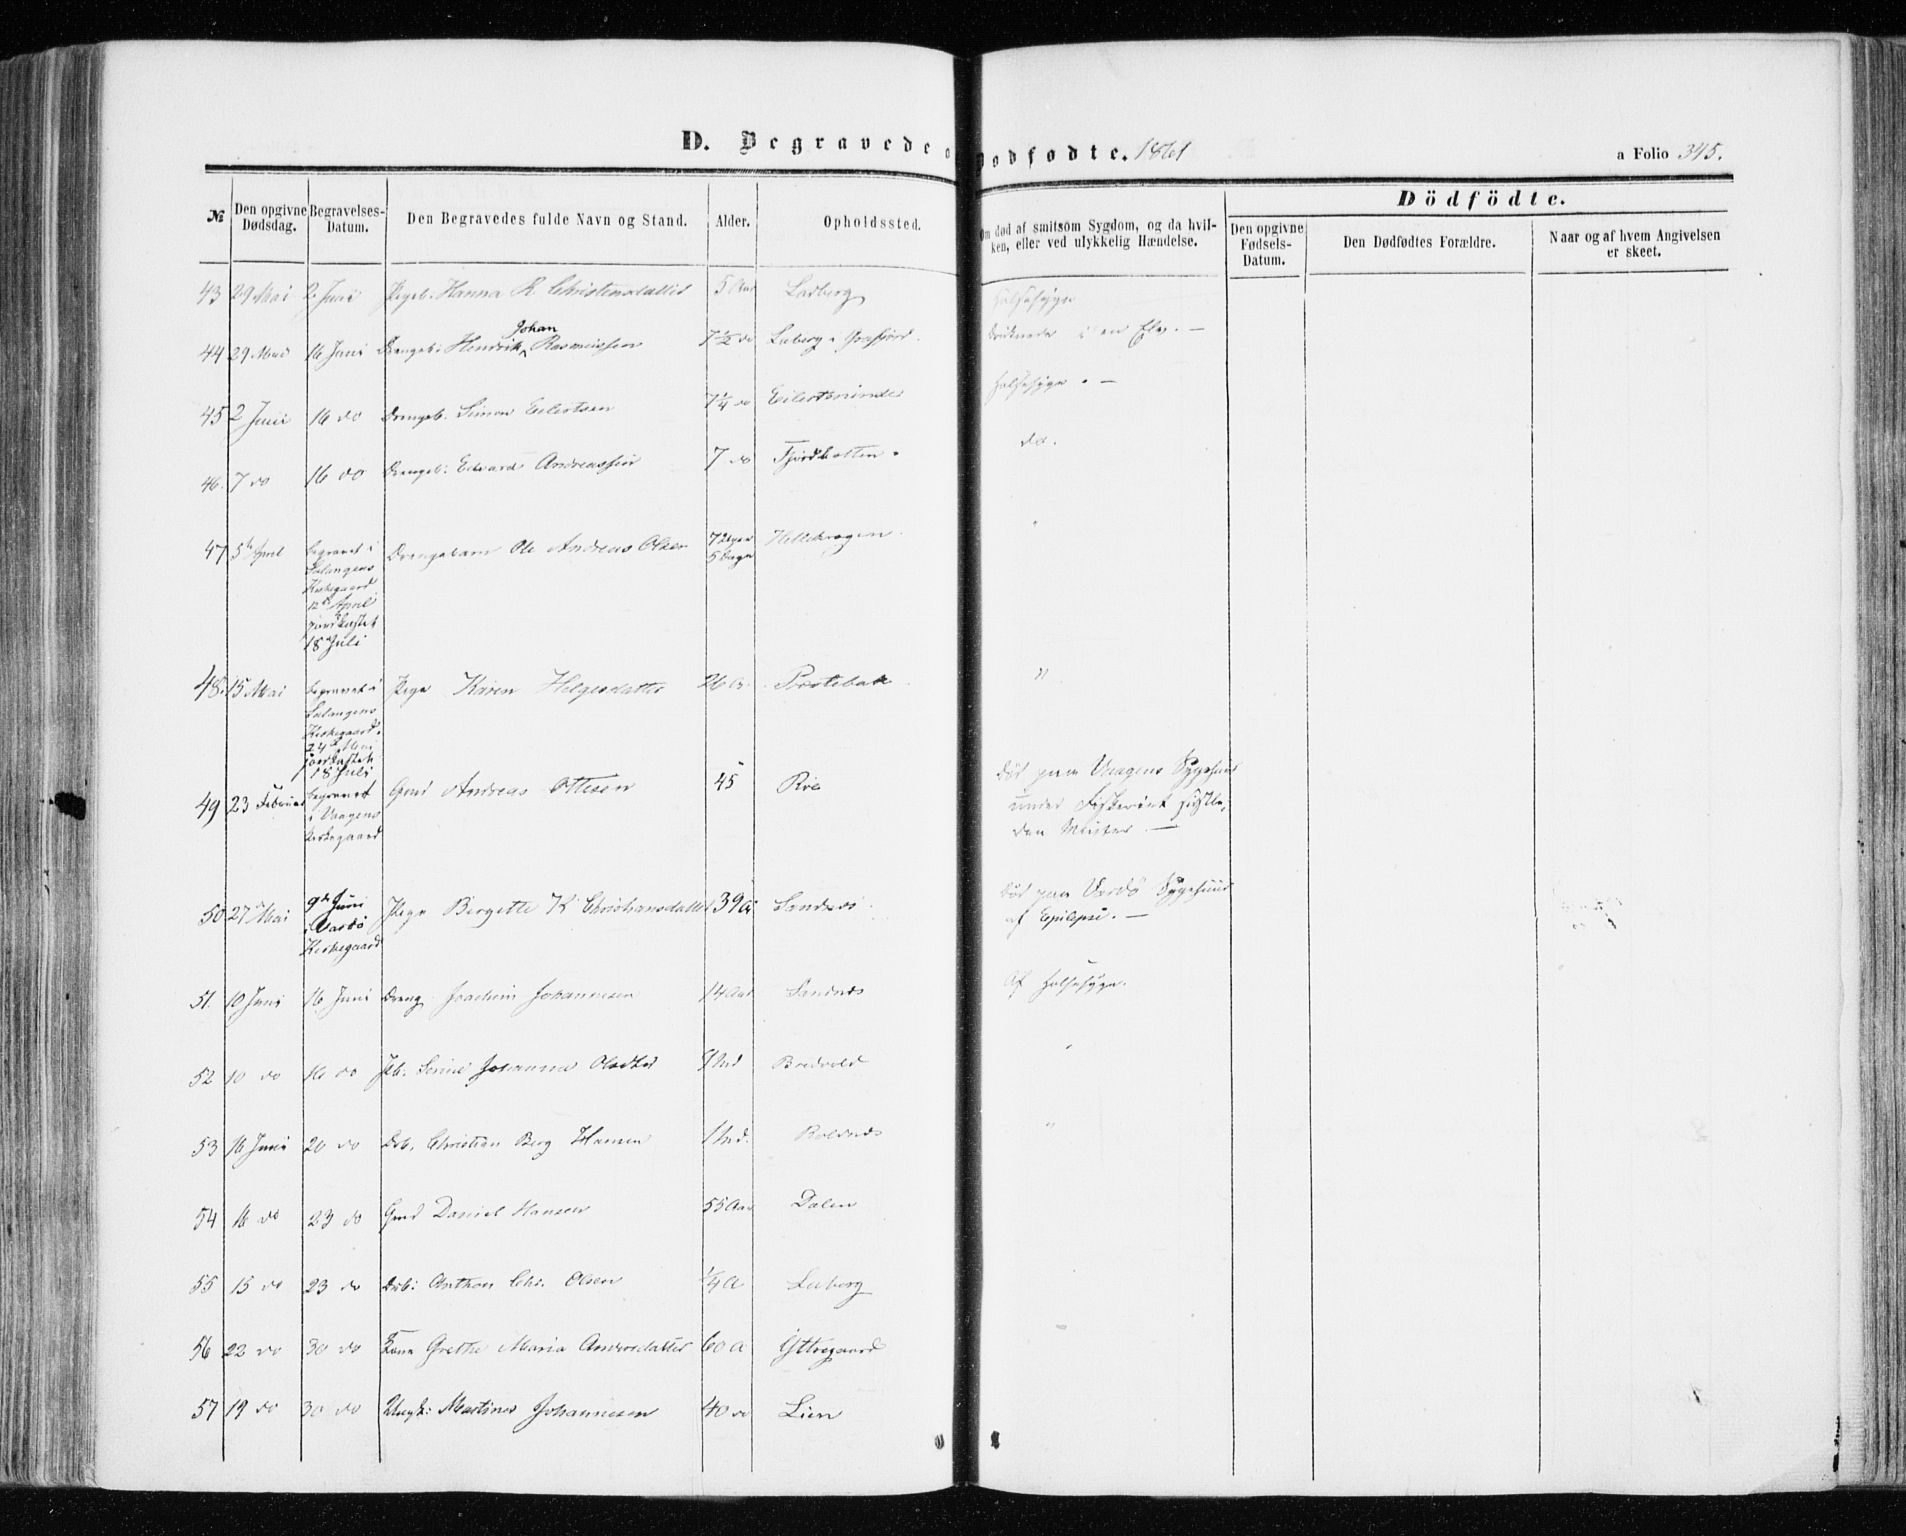 D. Begravede o
Dødfødte. 1861
a Folio 345.
№
Den opgivne Dødsdag.
Begravelses-Datum.
Den Begravedes fulde Navn og Stand.
Alder.
Opholdssted.
Om død af smitsom Sygdom, og da hvil-
ken, eller ved ulykkelig Hændelse.
Dödfödte.
Den opgivne Fødsels-Datum.
Den Dødfødtes Forældre.
Naar og af hvem Angivelsen er skeet.
43 29 Mai 2 Juni Pigeb. Hanna R. Christensdatter 5 Aar Laberg Halsesyge
Johan
44 29 Mai 16 Juni Drengeb: Hendrik Rasmussen 7 1/2 do Laberg i Gratfjord. Druknede i en Elv. —
45 2 Juni 16 do Drengeb. Simon Eilertsen 7 1/4 do Halsesyge. —
46. 7 do 16 do Drengeb: Edvard Andreassen 7 do Fjordbotten. do.
47 5te April begravet i Drengebarn Ole Andreas Olsen 7 Uger Hellekrogen. "
Salangens 5 Dage
Kirkegaard
12te April
jordkastet
18 Juli
48. 15 Mai begravet i Pige Karen Helgesdatter 26 a. "
Salangens
Kirkegaard
24 Mai
jordkastet
18 Juli
49 23 Februar begravet Gmd Andreas Ottesen 45 død paa Vaagens Sygehuus
i Vaagens under Fiskeriet sidstle-
Kirkegaard den Winter. —
50 27 Mai 9de Juni Pige Bergette K Christiansdatter 39 a Sandnæs. død paa Vardö Sygehuus
i Vardö af Epilepsi. —
Kirkegaard
51. 10 Juni 16 Juni Dreng Joachim Johannesen 14 Aar Sandnæs Af Halsesyge.
52 10 do 16 do Pb. Johanna Olsdtr Md Bredvold "
53 16 Juni 20 do Drb. Christian Berg Hansen 1 Md. "
54 16 do 23 do Gmd Daniel Hansen 55 Aar Dalen
55 15 do 23 do Drb: Anthon Chr. Olsen 1/4 A Laberg
56 22 do 30 do Kone Grethe Maria Andersdatter 60 a Yttregaard
57 19 do 30 do Ungk: Martinus Johannesen 40 do Lien